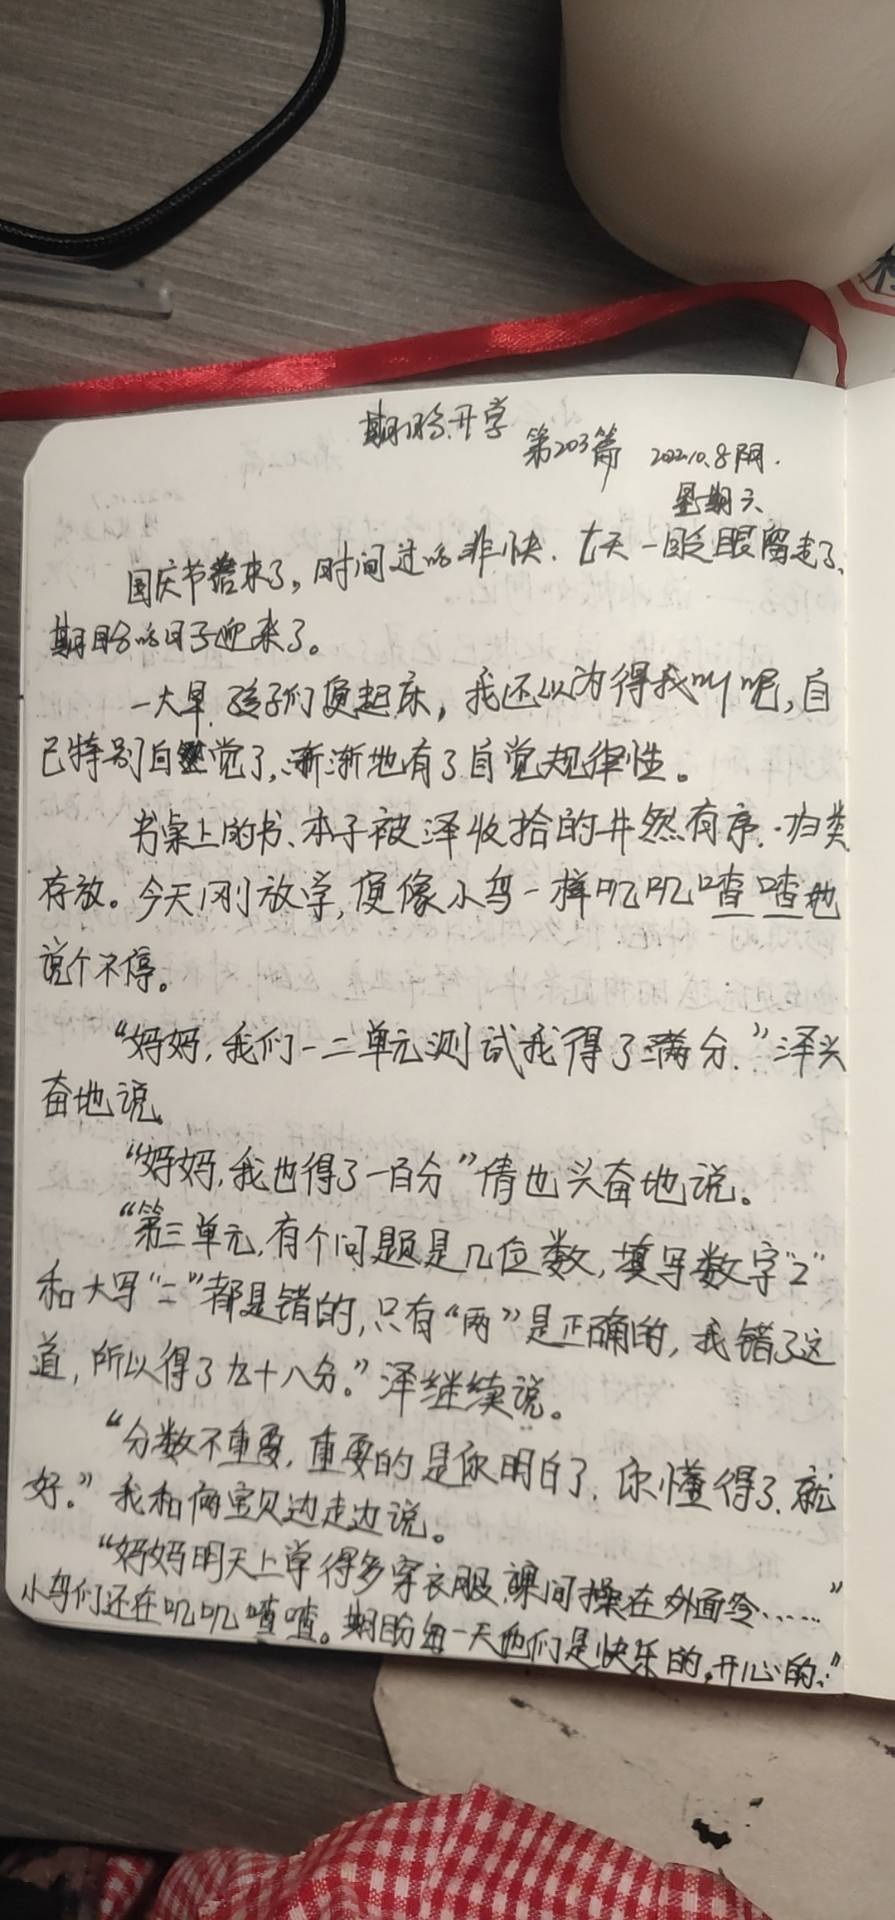 期盼开学
第203篇 2022.10.8 阴.
星期六
国庆节结束了，时间过的非快.七天一眨眼溜走了、
期盼的日子迎来了。
一大早，孩子们便起床，我还以为得我叫呢，自
己特别自觉了，渐渐地有了自觉规律性。
书桌上的书、本子被泽收拾的井然有序.归类
存放。今天刚放学，便像小鸟一样叽叽喳喳地
说个不停。
“妈妈，我们一二单元测试我得了满分.”泽兴
奋地说.
“妈妈，我也得了一百分”倩也兴奋地说。
“第三单元，有个问题是几位数，填写数字“2”
和大写“二”都是错的，只有“两”是正确的，我错了这
道，所以得了九十八分。”泽继续说。
“分数不重要，重要的是你明白了.你懂得了.就
好。”我和俩宝贝边走边说。
“妈妈明天上学得多穿衣服，课间操在外面冷……”
小鸟们还在叽叽喳喳。期盼每一天他们是快乐的，开心的.”